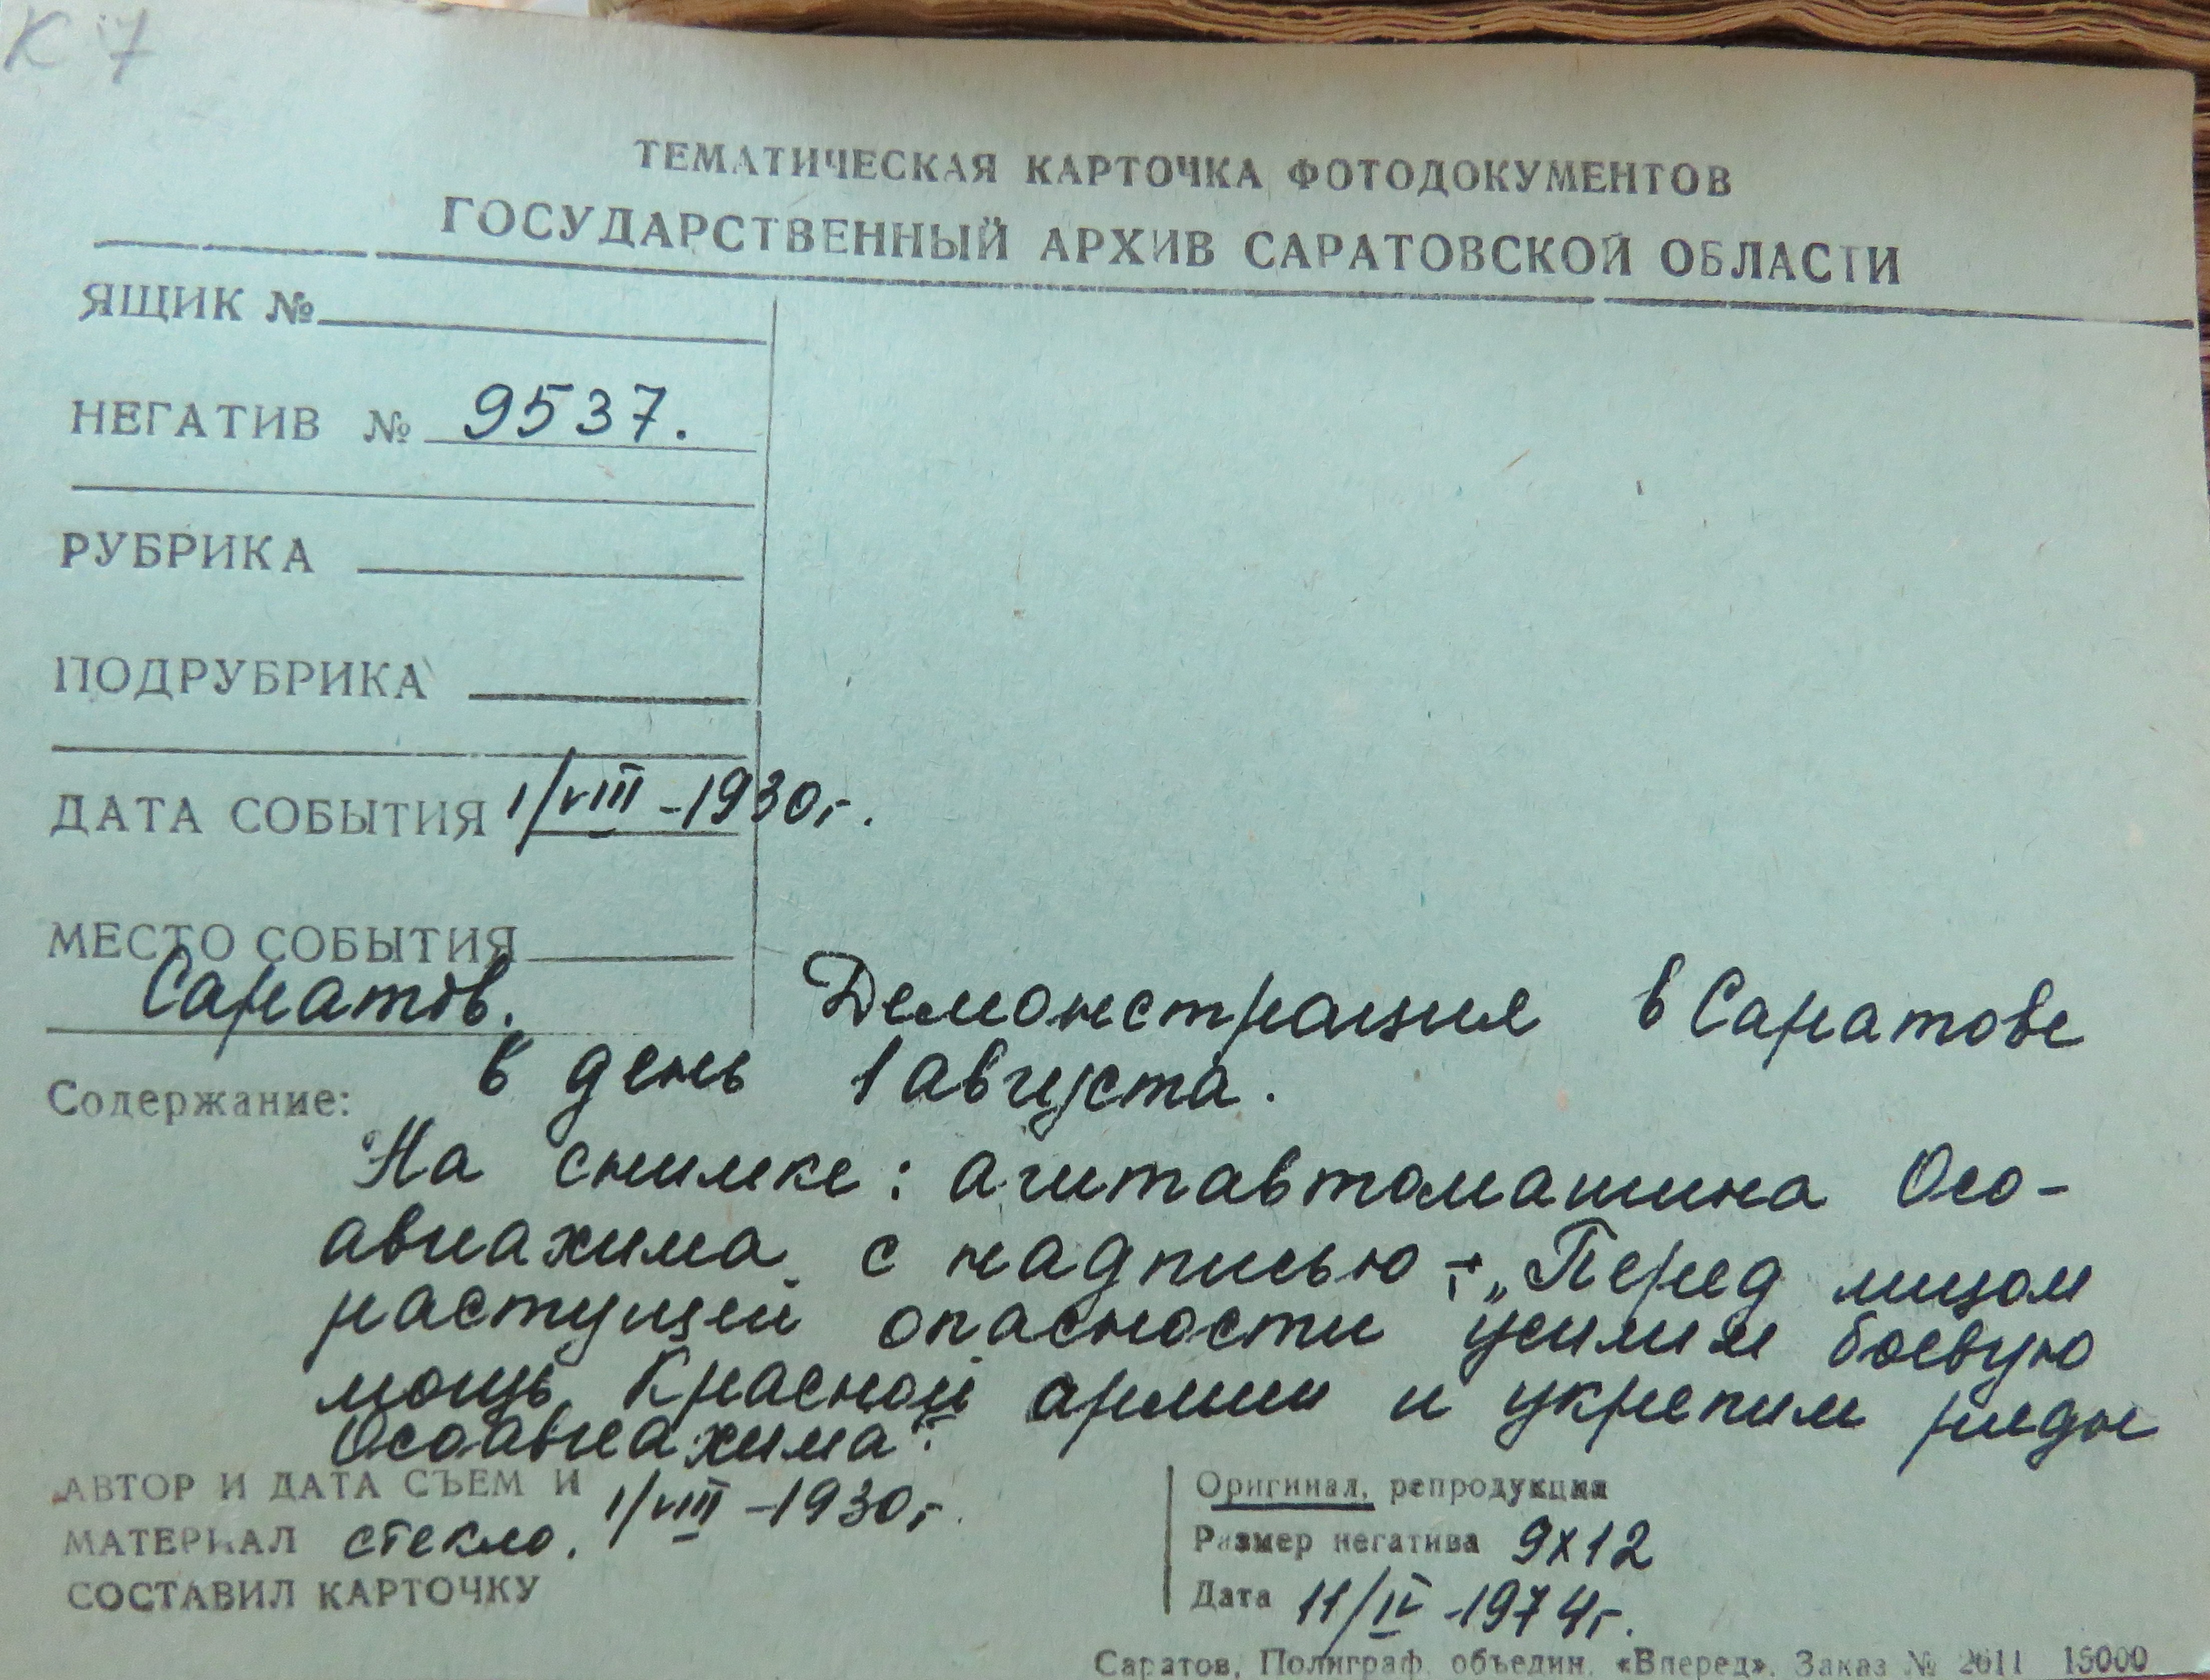 К 7
ТЕМАТИЧЕСКАЯ КАРТОЧКА ФОТОДОКУМЕНТОВ
ГОСУДАРСТВЕННЫЙ АРХИВ САРАТОВСКОЙ ОБЛАСТИ
ЯЩИК №
НЕГАТИВ № 9537.
РУБРИКА
ПОДРУБРИКА
ДАТА СОБЫТИЯ 1/VIII-1930г.
МЕСТО СОБЫТИЯ
Саратов.
Демонстрация в Саратове
Содержание: в день 1 августа.
На снимке: агитавтомашина Осо-
авиахима с надписью - „Перед лицом
растущей опасности усилим боевую
мощь Красной армии и укрепим ряды
Осоавиахима".
АВТОР И ДАТА СЪЕМ И 1/VIII-1930г.
МАТЕРИАЛ стекло.
СОСТАВИЛ КАРТОЧКУ
Оригинал, репродукция
Размер негатива 9х12
Дата 11/IV-1974г.
Саратов, Полиграф. объедин. «Вперед». Заказ № 2611 15000